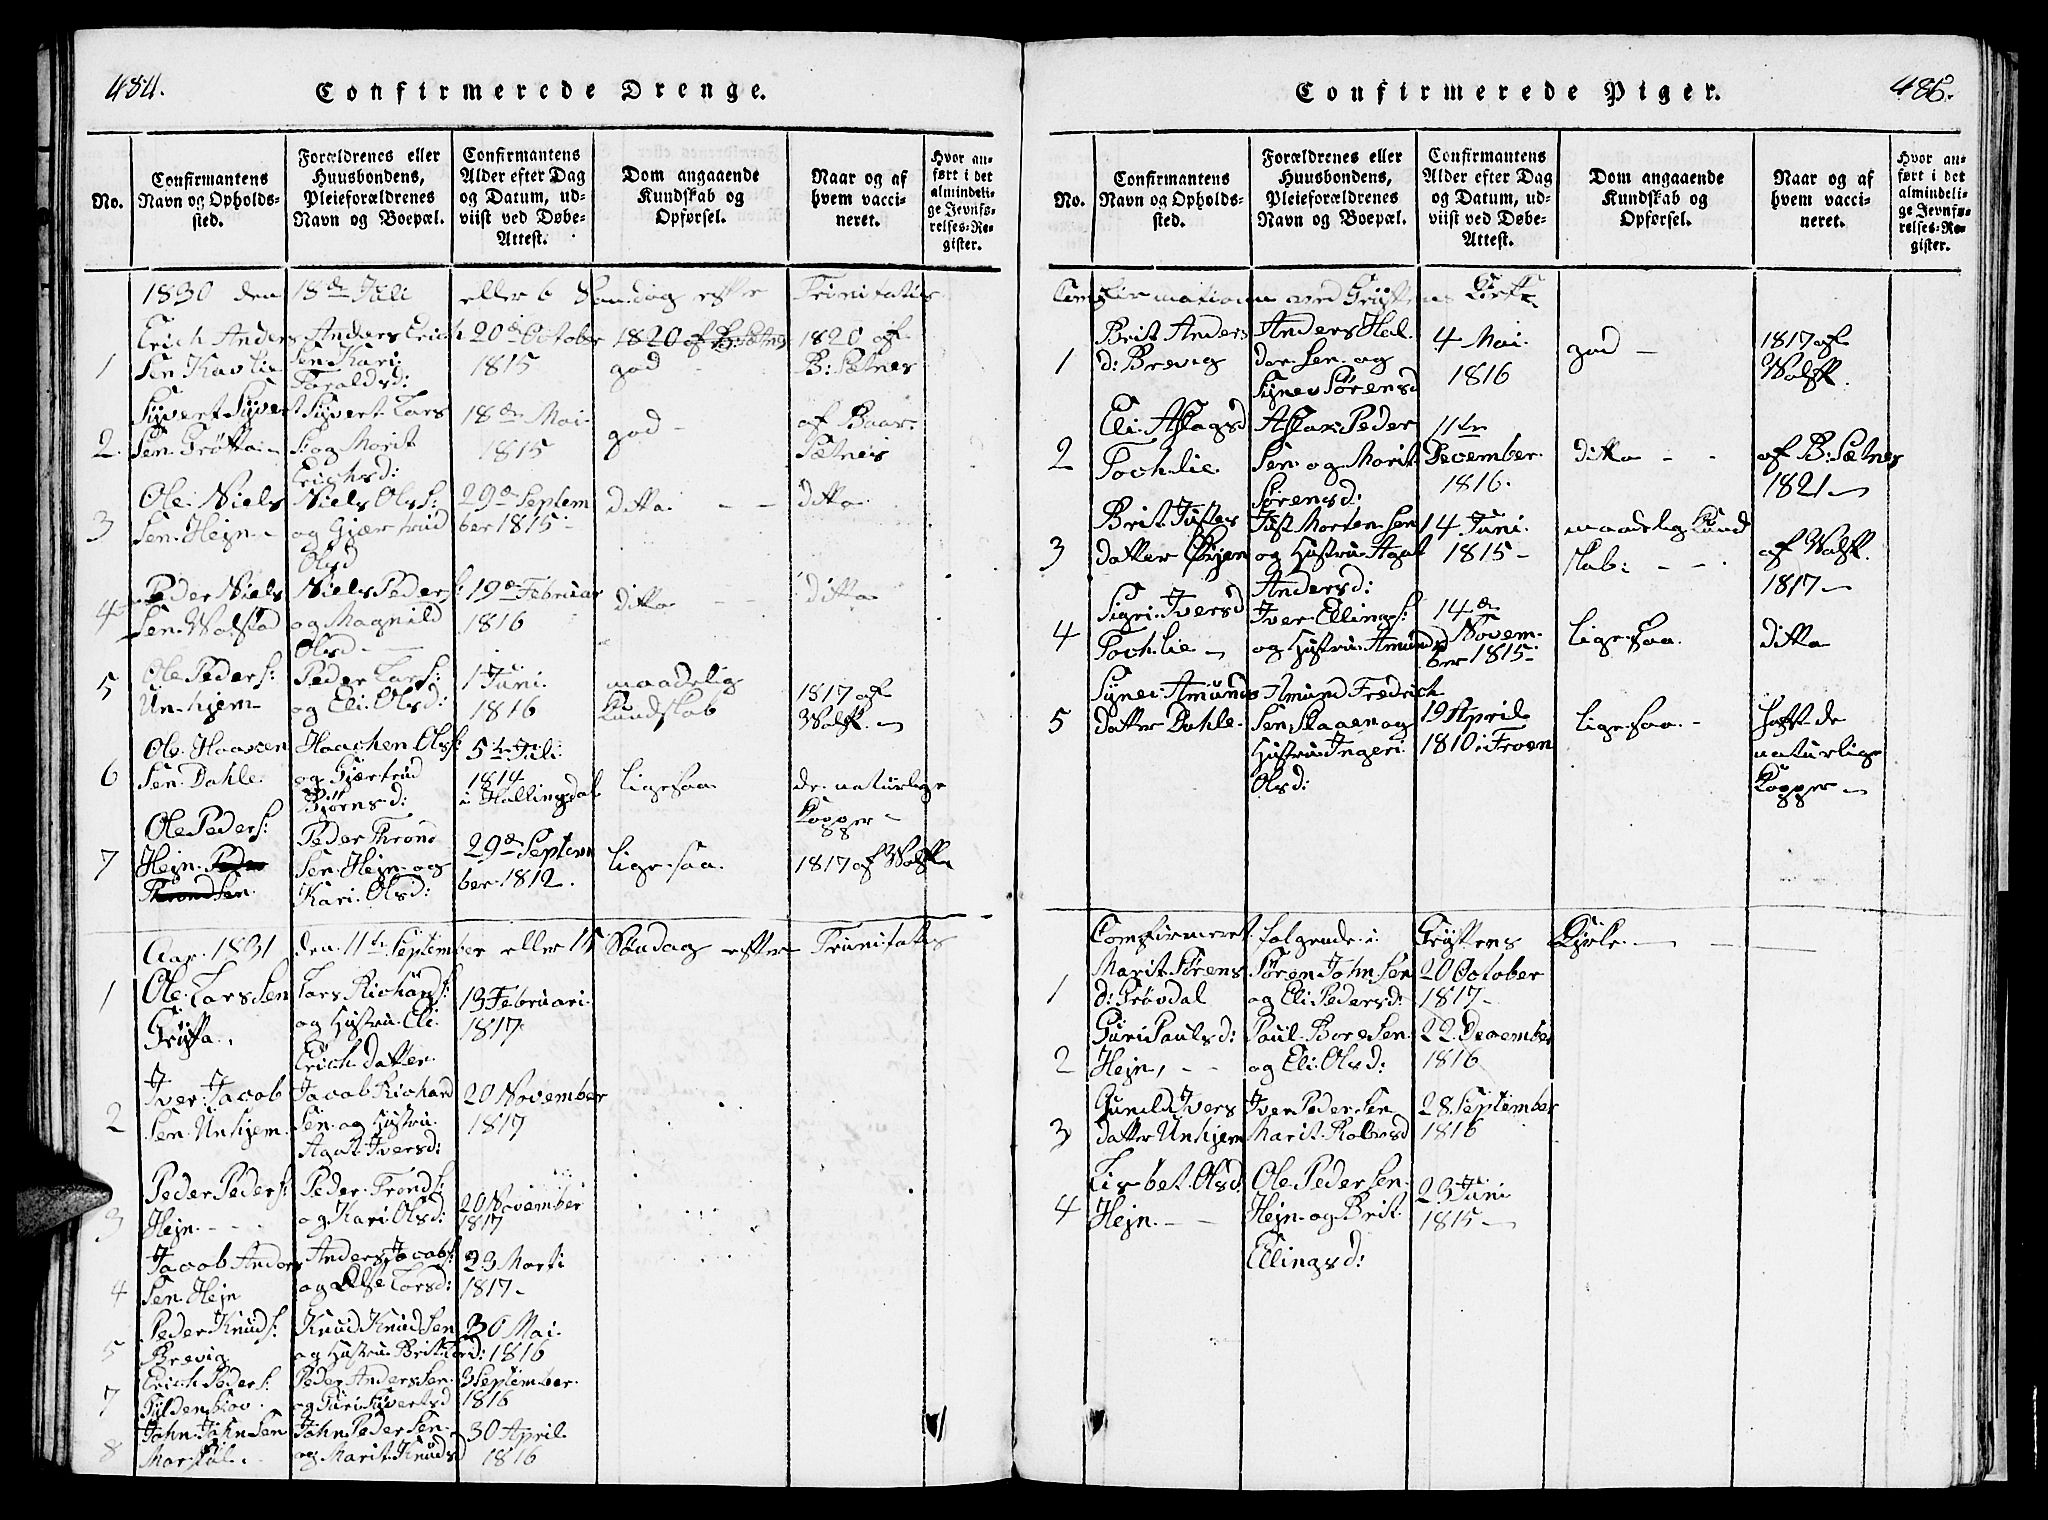 484.
Confirmerede Drenge.
No.
Confirmantens
Navn og Opholds-
sted.
Forældrenes eller
Huusbondens,
Pleieforældrenes
Navn og Boepæl.
Confirmantens
Alder efter Dag
og Datum, ud-
viist ved Døbe-
Attest.
Dom angaaende
Kundskab og
Opførsel.
Naar og af
hvem vacci-
neret.
Hvor an-
ført i det
almindeli-
ge Jevnfø-
relses-Re-
gister.
1830 den 18de Juli eller 6 Søndag efter Trinitatis
1
Erich Anders
Sen Kavlie
Anders Erich
Sen Kari
Taraldsd:
20de October
1815
1820 af B: Sætnes
god -
1820 af
B: Sætnes
2.
Syvert Syvert
Sen Grøtta
Syvert Lars
S: og Marit
Erichsd:
18de Mai
1815
god -
af Baar
Sætnes
3
Ole Niels
Sen Hejn -
Niels Ols S:
og Gjærtrud
Olsd
29de Septem
ber 1815 -
ditto - -
ditto
4
Peder Niels
Sen Walstad
Niels Peder S:
og Magnild
Olsd -
19de Februar
1816
ditto - -
ditto
5
Ole Peder S:
Unhjem
Peder Lars S:
og Eli Olsd:
1 Juni
1816
maadelig
Kundskab
1817 af
Wolff -
6
Ole Haaven
Sen Dahle
Haachen Ols S:
og Gjærtrud
Bjørnsd:
5te Juli
1814
i Hallingdal
ligesaa
de naturlige
Kopper -
7
Ole Peder S:
Hejn Peder
Thrond Sen
Peder Thrond
Sen Hejn og
Kari Olsd:
29de Septem
ber 1812.
ligesaa.
1817 af Wolff
Aar 1831 den 11te September eller 15 Søndag efter Trinitatis
1
Ole Lars Sen
Lars Richard S:
og Hustru Eli
Erich datter
13 Februari
1817
2
Iver Jacob
Sen Unhjem
Jacob Richard
Sen og Hustru
Agat Iversd:
20 November
1817
3
Peder Peder S:
Hejn - -
Peder Trond S:
og Kari Olsd:
20 November
1817
4
Jacob Anders
Sen Hejn
Anders Jacob S:
og Else Larsd:
23 Marti
1817 -
5
Peder Knud S:
Brevig
Knud Knud Sen
og Hustru Brit
30 Mai
1816
7
Erich Peder S:
Gyldenskov
Peder Anders Sen
og Guri Syvertsd
3 September
1816
8
John John Sen
Marstøl
John Peder Sen
og Marit Knudsd
30 April
1816
486.
Confirmerede Piger.
No.
Confirmantens
Navn og Opholds-
sted.
Forældrenes eller
Huusbondens,
Pleieforældrenes
Navn og Boepæl.
Confirmantens
Alder efter Dag
og Datum, ud-
viist ved Døbe-
Attest.
Dom angaaende
Kundskab og
Opførsel.
Naar og af
hvem vacci-
neret.
Hvor an-
ført i det
almindeli-
ge Jevnfø-
relses-Re-
gister.
Confirmationen ved Gryttens Kirke
1
Brit Anders
d: Brevig
Anders Hal
dor Sen og
Synev Sørensd
4 Mai
1816
god -
1817 af
Wolff.
2
Eli Aslagsd
Tochlie
Aslac Peder
Sen og Marit
Sørensd:
11te
December
1816.
ditto - -
af B: Sætnes
1821 -
3
Brit Justes
datter
Just Morten Sen
og Hustru Agat
Andersd:
14 Juni
1815 -
maadelig Kund
skab: - -
af Wolff.
1817 -
4
Sigri Iversd
Tochlie -
Iver Ellings S:
og Hustru Amunds
14de
Novem
ber 1815
ligesaa
ditto
5
Synev Amunds
datter Dahle
Amund Fredrich
Sen Slaaen og
Hustru Ingeri
Olsd:
19 April
1810 i Froen
ligesaa -
haft de
naturlige
Kopper -
Confirmeret følgende i Gryttens Kirke -
1
Marit Sørens
d: Grøvdal
Søren John Sen
og Eli Pedersd:
20 October
1817 -
2
Guri Paulsd:
Hejn, - -
Paul Bore Sen
og Eli Olsd:
22 December
1816
3
Gunild Ivers
datter Unhjem
Iver Peder Sen
Marit
28 September
1816
4
Lisbet Olsd
Hejn - -
Ole Peder Sen
Hejn og Brit
Ellingsd:
23 Juni
1815 -